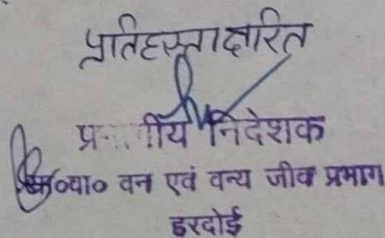 प्रतिहस्ताक्षरित
निदेशक
वा० वन एवं वन्य जीव प्रभाग
हरदोई